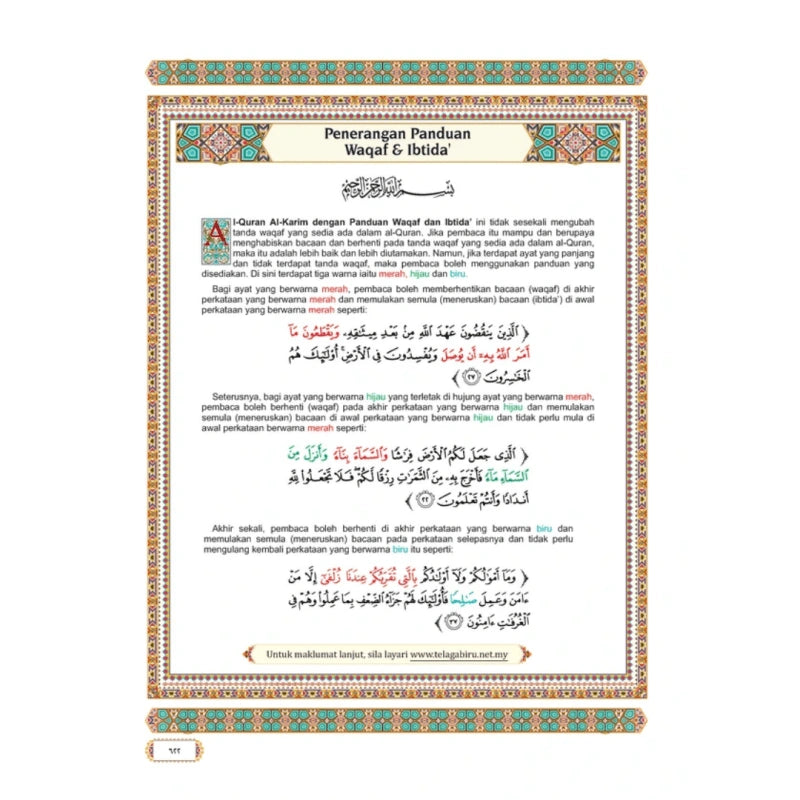 Penerangan Panduan
Waqaf & Ibtida'
بِسْمِ اللَّهِ الرَّحْمَٰنِ الرَّحِيمِ
Al-Quran Al-Karim dengan Panduan Waqaf dan Ibtida' ini tidak sesekali mengubah
tanda waqaf yang sedia ada dalam al-Quran. Jika pembaca itu mampu dan berupaya
menghabiskan bacaan dan berhenti pada tanda waqaf yang sedia ada dalam al-Quran,
maka itu adalah lebih baik dan lebih diutamakan. Namun, jika terdapat ayat yang panjang
dan tidak terdapat tanda waqaf, maka pembaca boleh menggunakan panduan yang
disediakan. Di sini terdapat tiga warna iaitu merah, hijau dan biru.
Bagi ayat yang berwarna merah, pembaca boleh memberhentikan bacaan (waqaf) di akhir
perkataan yang berwarna merah dan memulakan semula (meneruskan) bacaan (ibtida') di awal
perkataan yang berwarna merah seperti:
﴿ الَّذِينَ يَنقُضُونَ عَهْدَ اللَّهِ مِنۢ بَعْدِ مِيثَٰقِهِۦ وَيَقْطَعُونَ مَآ
أَمَرَ اللَّهُ بِهِۦٓ أَن يُوصَلَ وَيُفْسِدُونَ فِى الْأَرْضِ ۚ أُو۟لَٰٓئِكَ هُمُ
الْخَٰسِرُونَ ٢٧ ﴾
Seterusnya, bagi ayat yang berwarna hijau yang terletak di hujung ayat yang berwarna merah,
pembaca boleh berhenti (waqaf) pada akhir perkataan yang berwarna hijau dan memulakan
semula (meneruskan) bacaan di awal perkataan yang berwarna hijau dan tidak perlu mula di
awal perkataan berwarna merah seperti:
﴿ الَّذِى جَعَلَ لَكُمُ الْأَرْضَ فِرَٰشًا وَالسَّمَآءَ بِنَآءً وَأَنزَلَ مِنَ
السَّمَآءِ مَآءً فَأَخْرَجَ بِهِۦ مِنَ الثَّمَرَٰتِ رِزْقًا لَّكُمْ ۖ فَلَا تَجْعَلُوا۟ لِلَّهِ
أَندَادًا وَأَنتُمْ تَعْلَمُونَ ٢٢ ﴾
Akhir sekali, pembaca boleh berhenti di akhir perkataan yang berwarna biru dan
memulakan semula (meneruskan) bacaan pada perkataan selepasnya dan tidak perlu
mengulang kembali perkataan yang berwarna biru itu seperti:
﴿ وَمَآ أَمْوَٰلُكُمْ وَلَآ أَوْلَٰدُكُم بِالَّتِى تُقَرِّبُكُمْ عِندَنَا زُلْفَىٰٓ إِلَّا مَنْ
ءَامَنَ وَعَمِلَ صَٰلِحًا فَأُو۟لَٰٓئِكَ لَهُمْ جَزَآءُ الضِّعْفِ بِمَا عَمِلُوا۟ وَهُمْ فِى
الْغُرُفَٰتِ ءَامِنُونَ ٣٧ ﴾
Untuk maklumat lanjut, sila layari www.telagabiru.net.my
٦٢٢